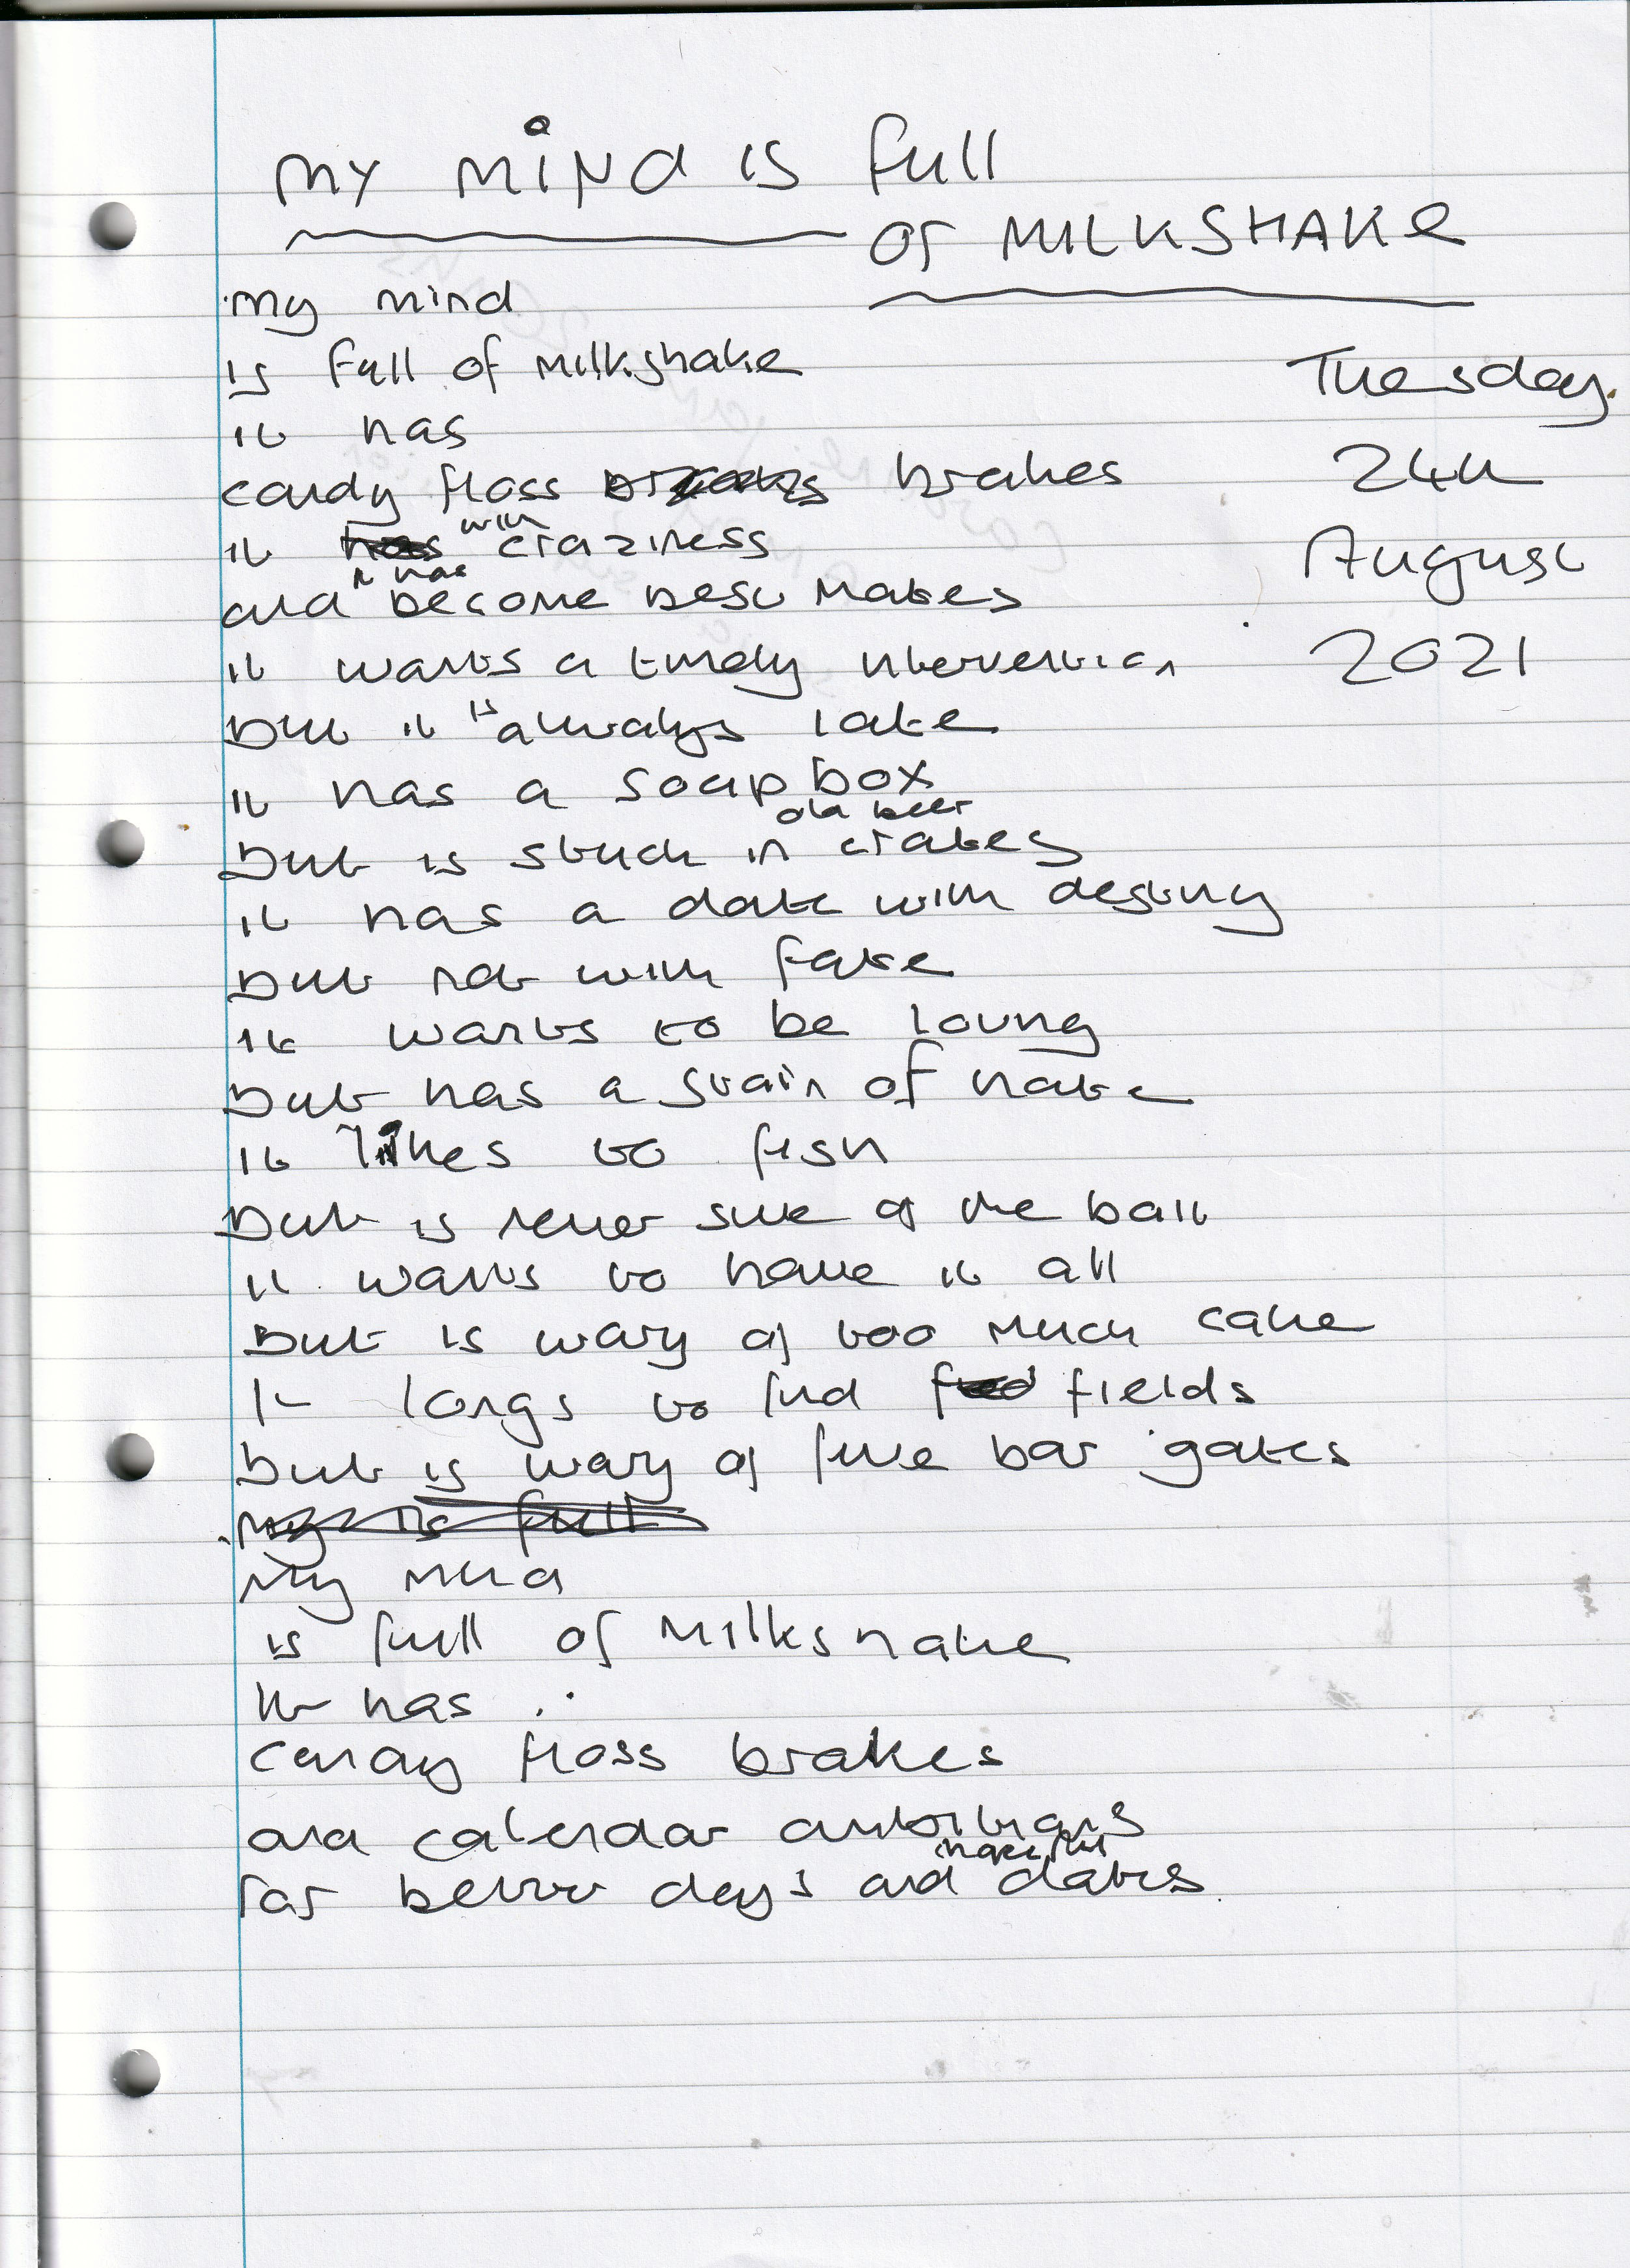 MY MIND IS full
OF MILKSHAKE
my mind
is full of milkshake
it has
candy floss brakes
it with craziness
and it has become best mates
it wants a timely intervention
but it is always late
it has a soap box
but is stuck in old beer crates
it has a date with destiny
but not with fate
it wants to be loving
but has a stain of hate
it likes to fish
but is never sure of the bait
it wants to have it all
but is wary of too much cake
It longs to find fields
but is wary of five bar gates
my mind
is full of milkshake
It has
candy floss brakes
and calendar ambitions
for better days and dates
Tuesday
24th
August
2021